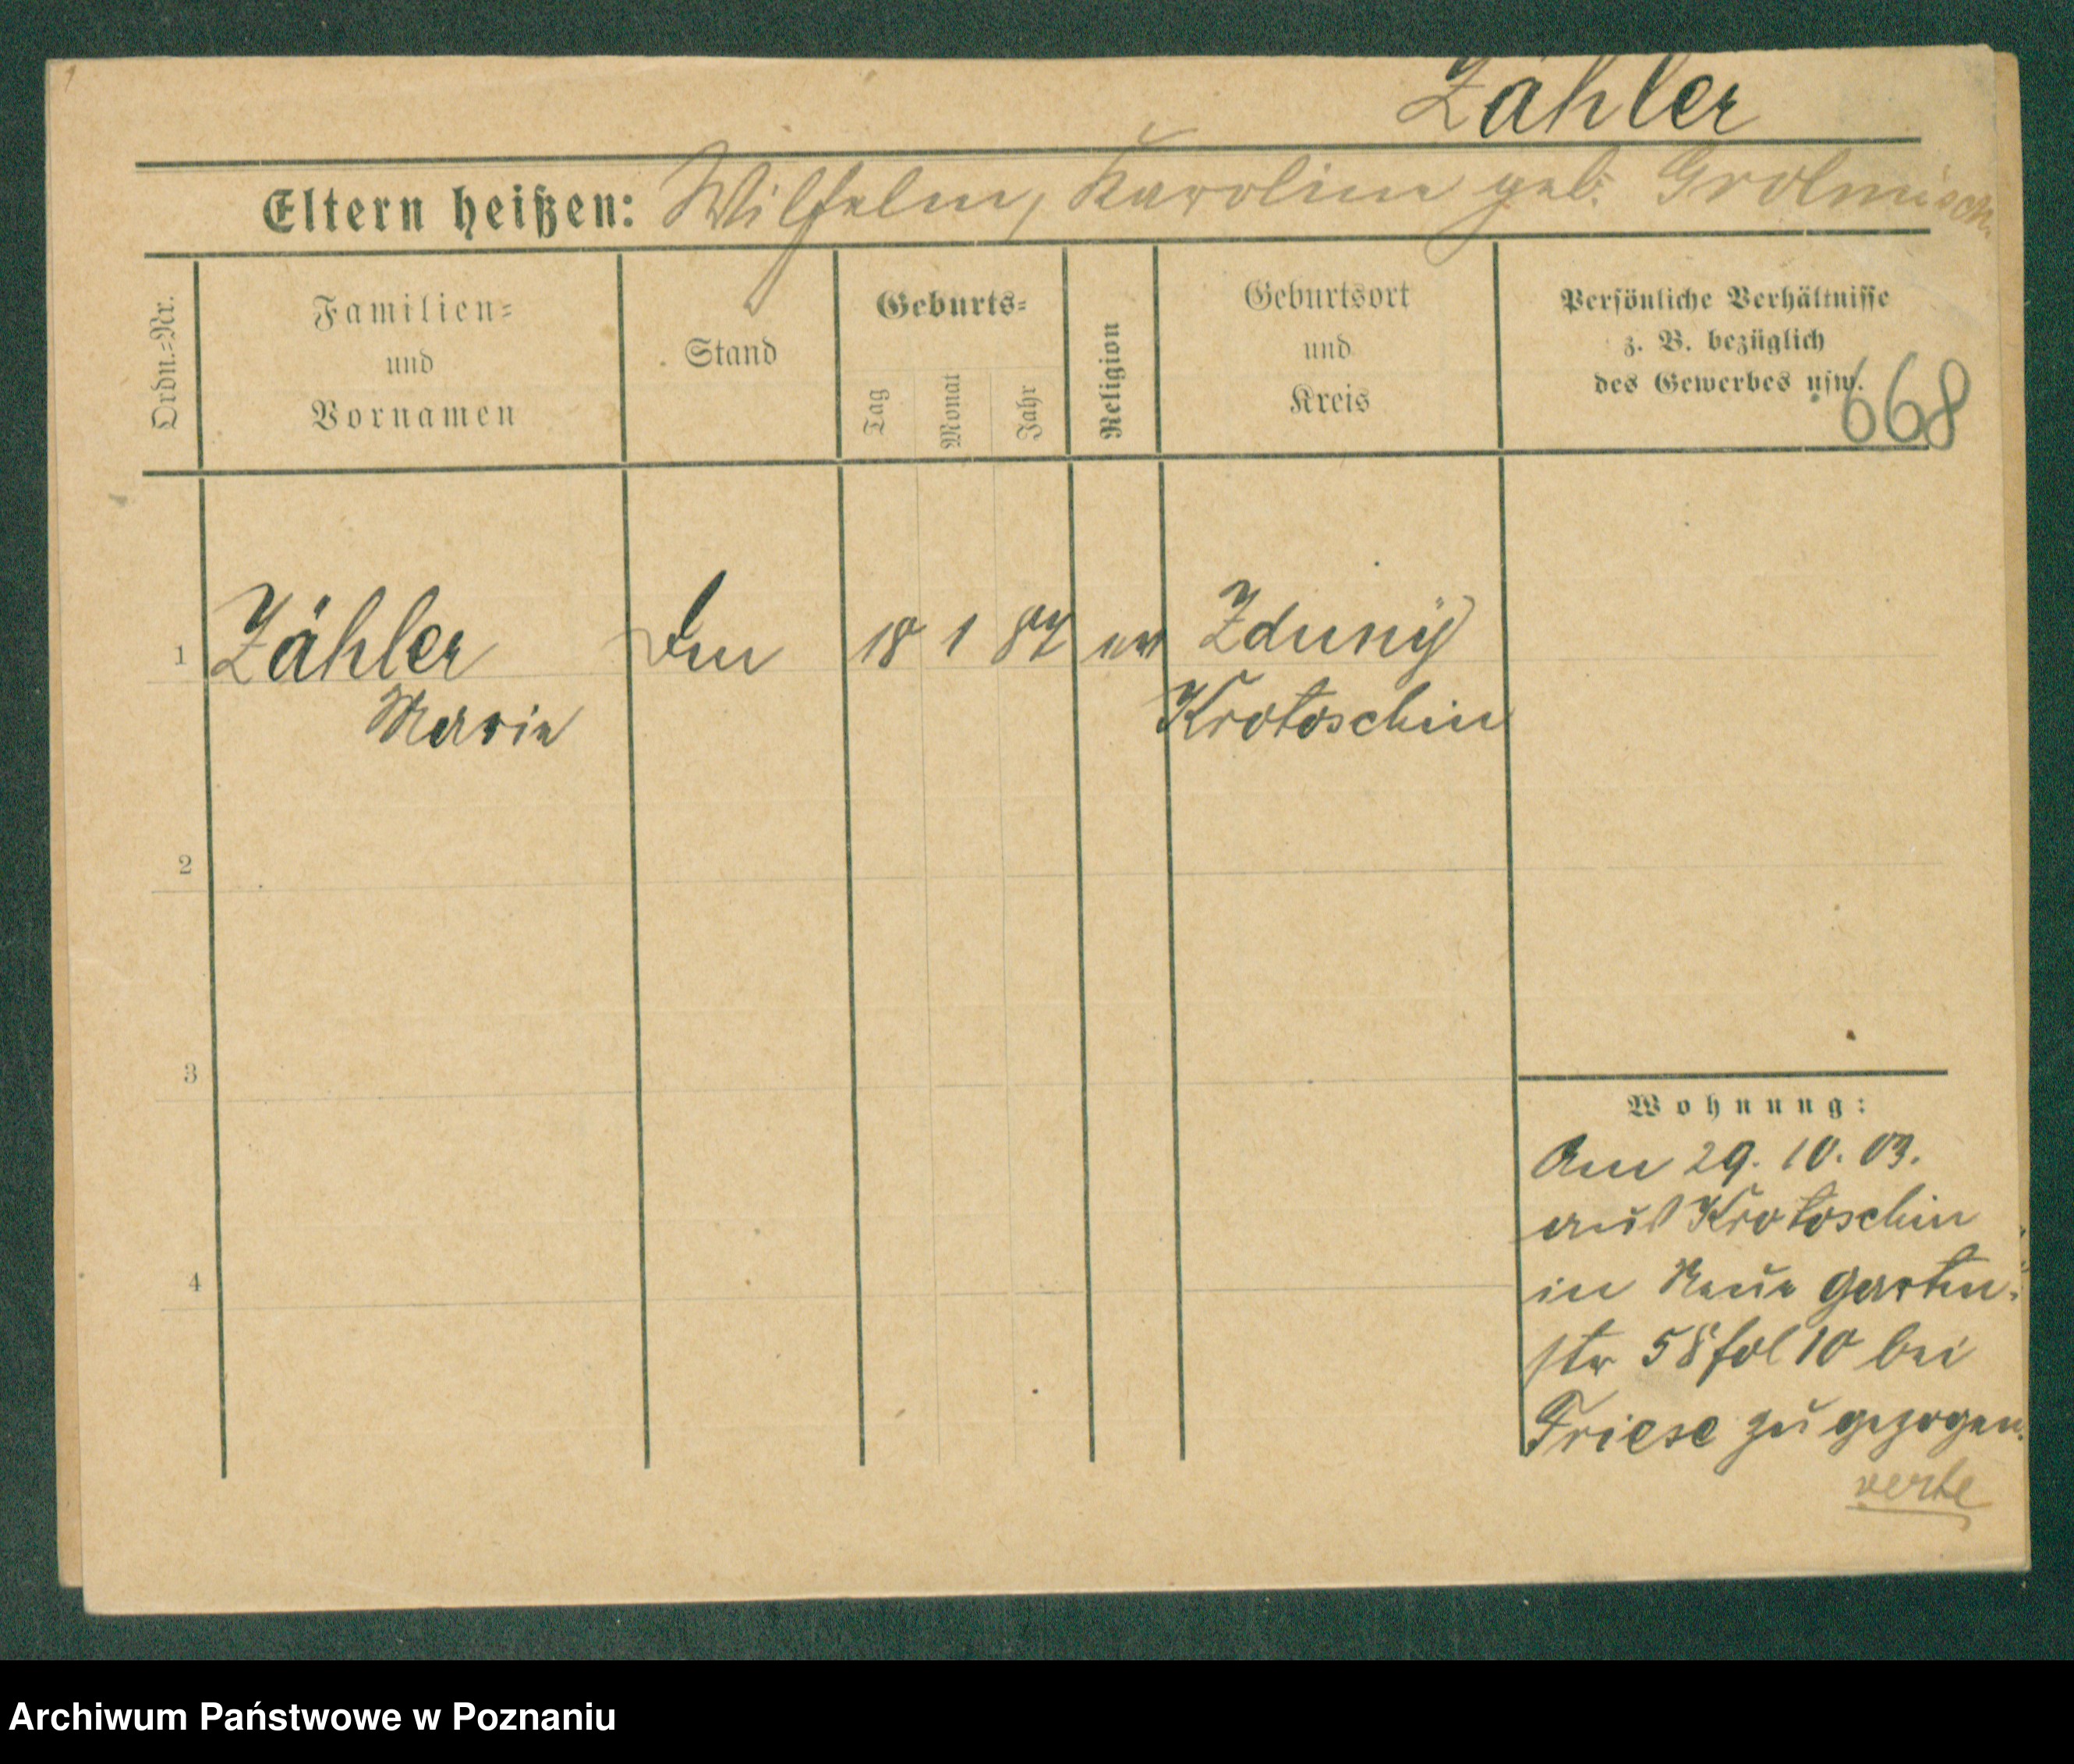 Zähler
Eltern heißen: Wilhelm, Karoline geb. Grolmisch.
Ordn.=Nr.
Familien=
und
Vornamen
Stand
Geburts=
Tag
Monat
Jahr
Religion
Geburtsort
und
Kreis
Persönliche Verhältnisse
z. B. bezüglich
des Gewerbes usw.
668
1 Zähler 18 1 87 ev Zduny
Marie Krotoschin
2
3
4
Wohnung:
Am 29. 10. 03.
aus Krotoschin
in Neue Garten-
str 58 fol 10 bei
Friese zugezogen.
verte
Archiwum Państwowe w Poznaniu